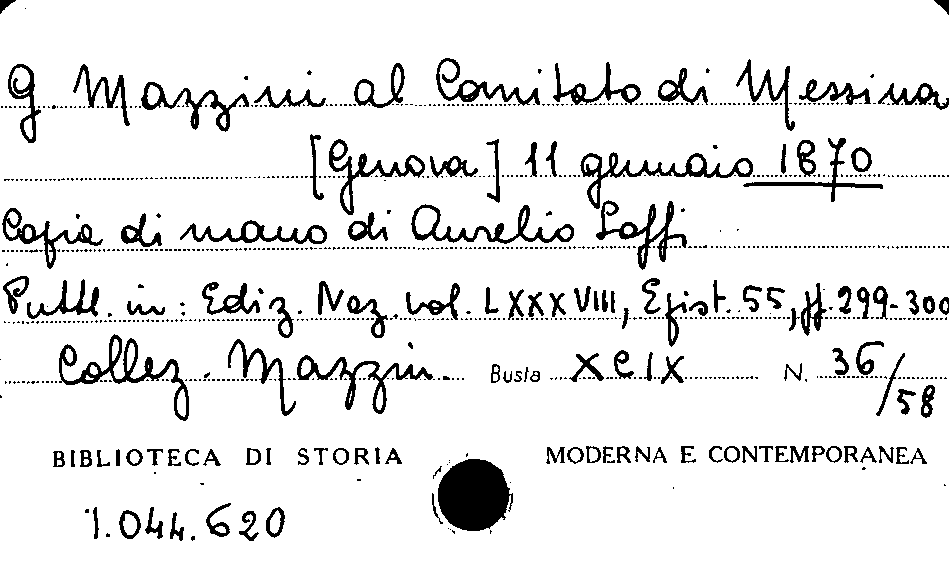 G. Mazzini al Comitato di Messina
[Genova] 11 gennaio 1870
Copia di mano di Aurelio Saffi
Pubbl. in: Ediz. Naz. vol. LXXXVIII, Epist. 55, pp. 299-300
Collez. Mazzini. Busta XCIX N. 36/58
BIBLIOTECA DI STORIA MODERNA E CONTEMPORANEA
1.044.620